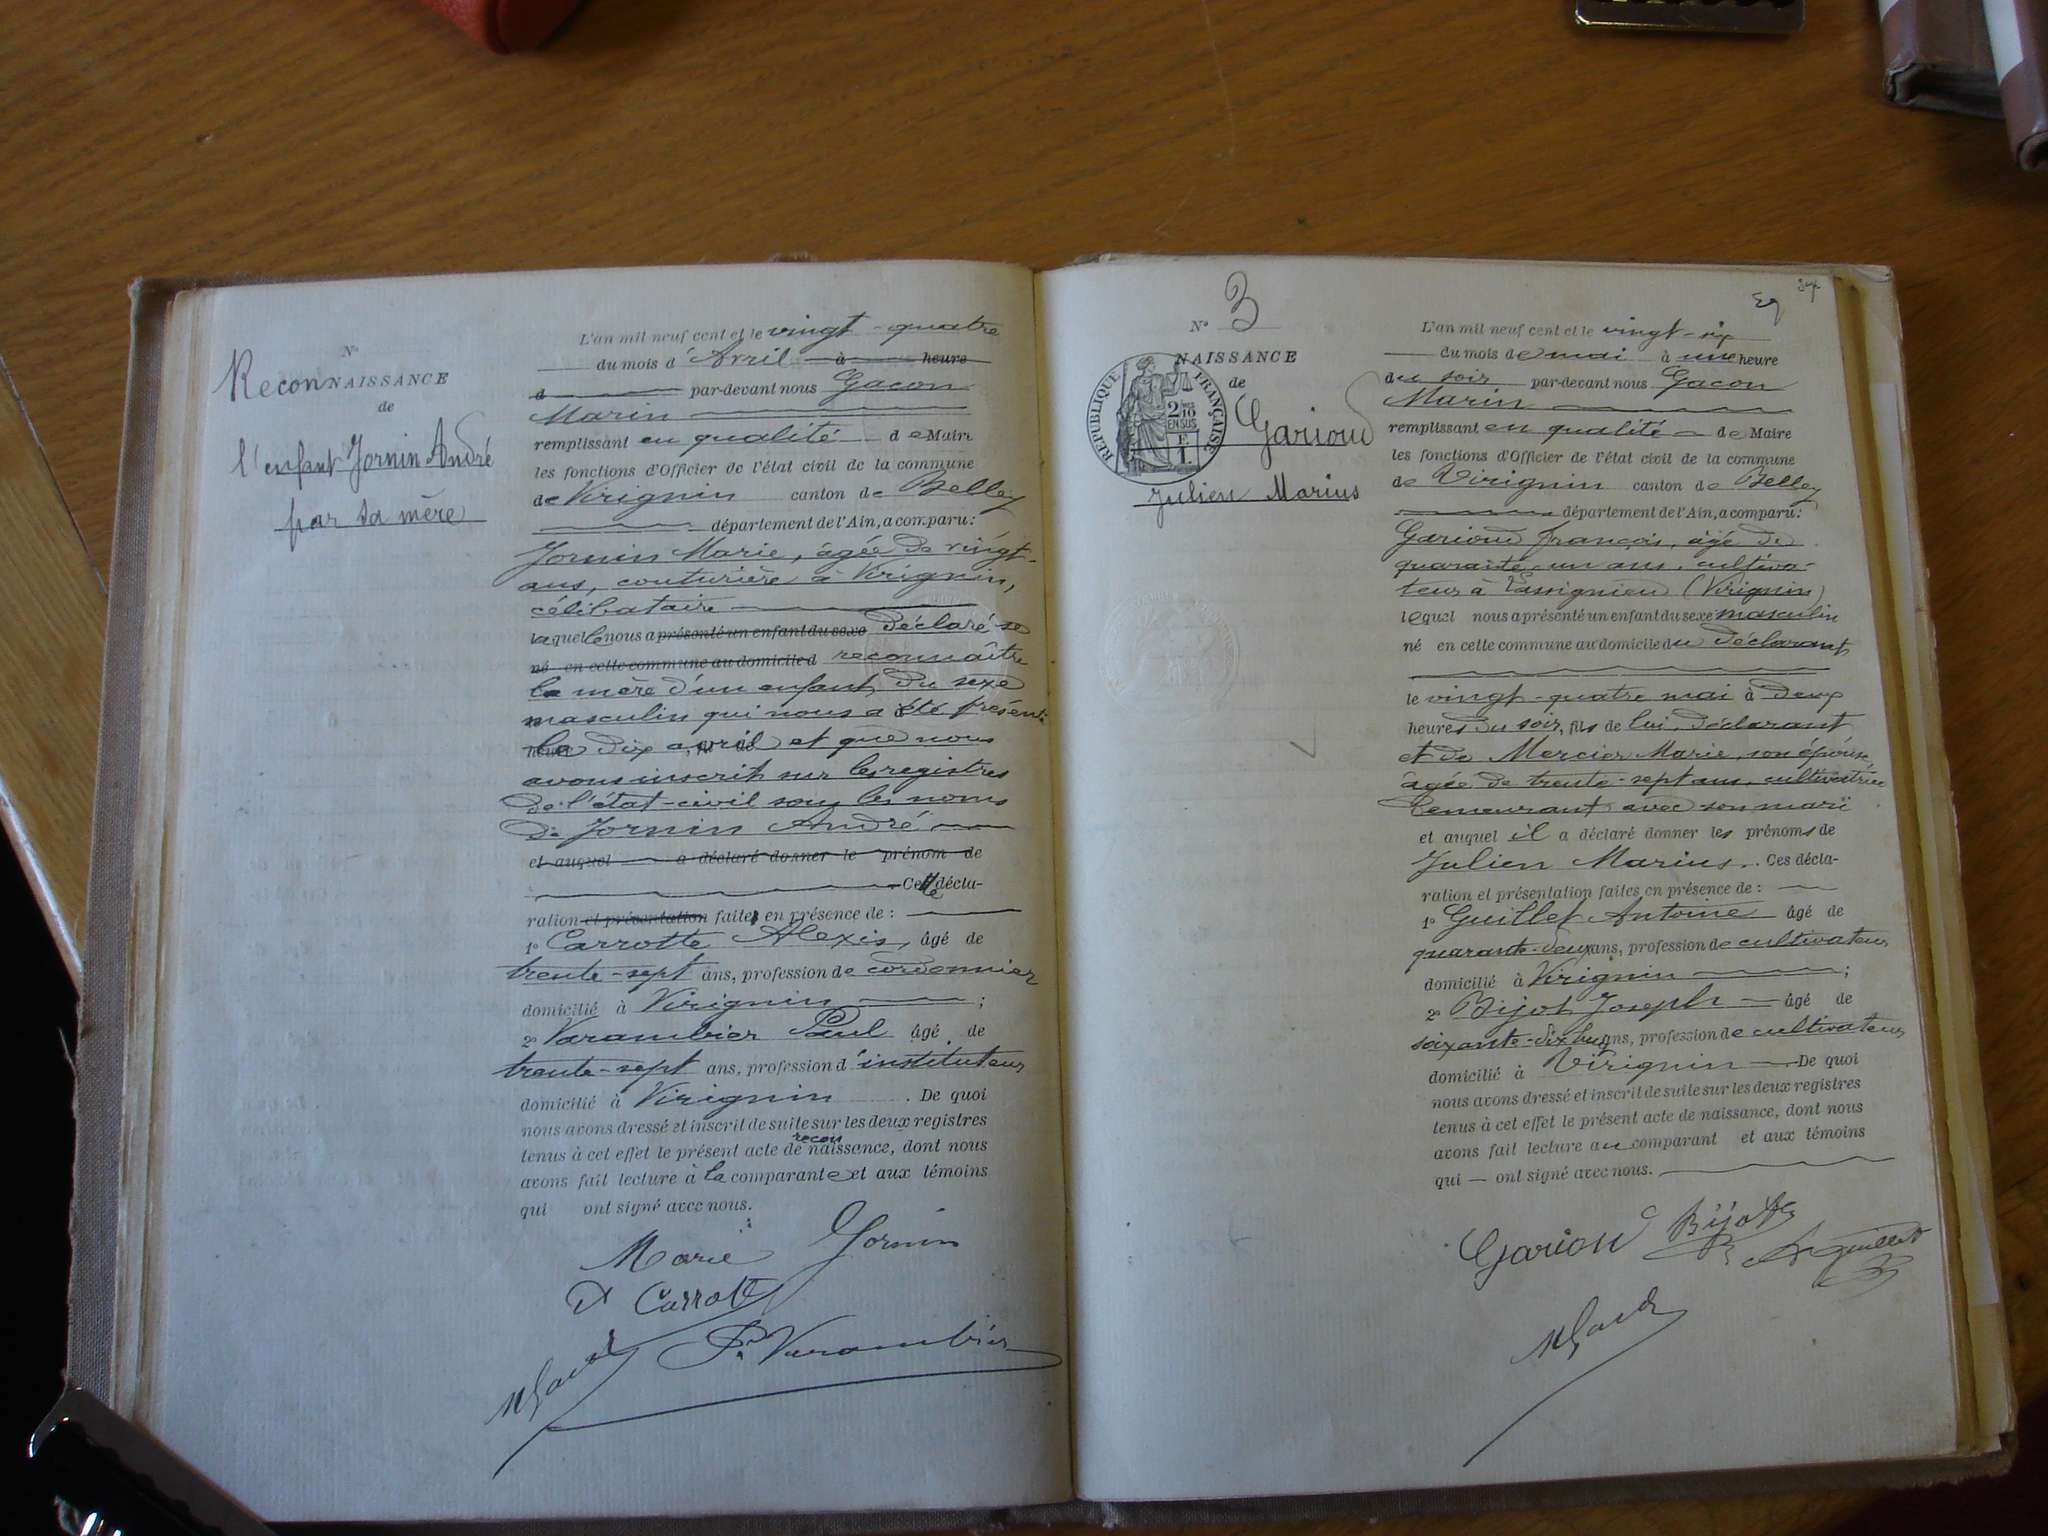 N°
ReconNAISSANCE
de
l'enfant Jornin André
par sa mère
L'an mil neuf cent et le vingt-quatre
du mois d'Avril à heure
d par-devant nous Gacon
Marin
remplissant en qualité de Maire
les fonctions d'Officier de l'état civil de la commune
de Virignin canton de Belley
département de l'Ain, a comparu:
Jornin Marie, âgée de vingt-
ans, couturière à Virignin,
célibataire
laquelle nous a présenté un enfant du sexe déclaré se
né en cette commune au domicile d reconnaître
la mère d'un enfant du sexe
masculin qui nous a été présenté
le dix avril et que nous
avons inscrit sur les registres
de l'état-civil sous les noms
de Jornin André
et auquel a déclaré donner le prénom de
Cette décla-
ration et présentation faite en présence de :
1° Carrotte Alexis, âgé de
trente-sept ans, profession de cordonnier
domicilié à Virignin ;
2° Varambier Paul âgé de
trente-sept ans, profession d'instituteur
domicilié à Virignin . De quoi
nous avons dressé et inscrit de suite sur les deux registres
tenus à cet effet le présent acte de reconnaissance, dont nous
avons fait lecture à la comparante et aux témoins
qui ont signé avec nous.
Marie Jornin
At Carrotte
P. Varambier
MGacon
N° 3
NAISSANCE
de
RÉPUBLIQUE FRANÇAISE
2/10
EN SUS
Garioud
Julien Marius
L'an mil neuf cent et le vingt-six
du mois de mai à une heure
du soir par-devant nous Gacon
Marin
remplissant en qualité de Maire
les fonctions d'Officier de l'état civil de la commune
de Virignin canton de Belley
département de l'Ain, a comparu:
Garioud françois, âgé de
quarante-un ans, cultiva-
teur à Lassignieu (Virignin)
lequel nous a présenté un enfant du sexe masculin
né en cette commune au domicile du déclarant
le vingt-quatre mai à deux
heures du soir, fils de lui, déclarant
et de Mercier Marie, son épouse,
âgée de trente-sept ans, cultivatrice
demeurant avec son mari
et auquel il a déclaré donner les prénoms de
Julien Marius. Ces décla-
ration et présentation faites en présence de :
1° Guillet Antoine âgé de
quarante-deux ans, profession de cultivateur
domicilié à Virignin ;
2° Bijot Joseph âgé de
soixante-dix huit ans, profession de cultivateur
domicilié à Virignin De quoi
nous avons dressé et inscrit de suite sur les deux registres
tenus à cet effet le présent acte de naissance, dont nous
avons fait lecture au comparant et aux témoins
qui — ont signé avec nous.
Garioud Bijot Guillet
MGacon